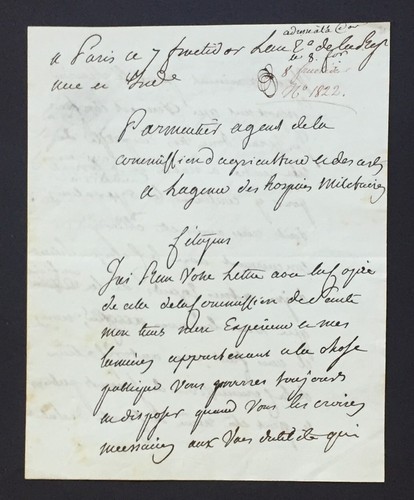 a Paris ce 7 fructidor Lan 2e de la Rep
une et Indle
8 fructidor
No. 1822.
Parmentier agent de la
commission d'agriculture et des arts
a Lagence des hospices Militaires
Citoyens
J'ai Recu Votre Lettre avec la Copie
de celle de la Commission de Santé
mon tems mon Experience et mes
lumieres appartenant a la chose
publique Vous pourres toujours
en disposer quand Vous les croires
necessaires aux Vues dutilité qui